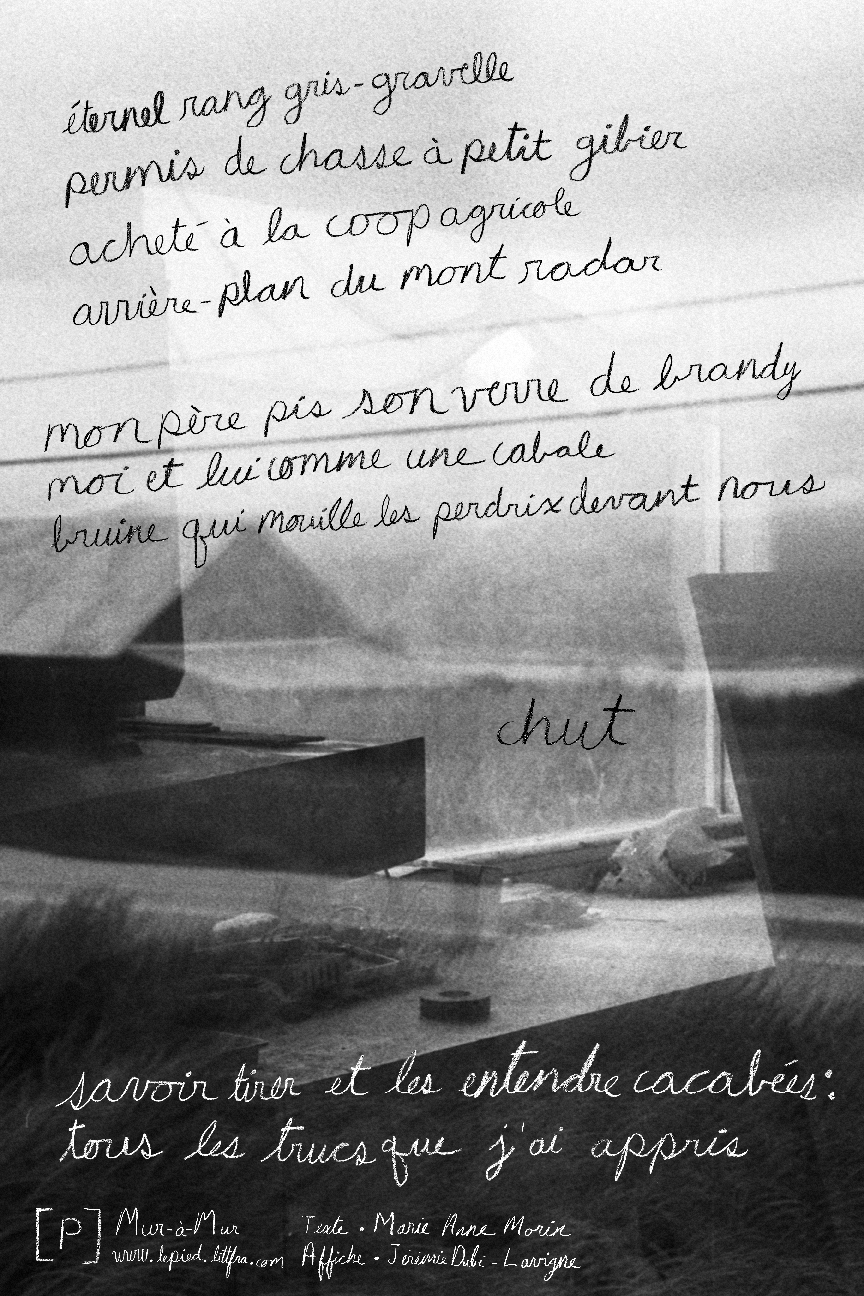 éternel rang gris-gravelle
permis de chasse à petit gibier
acheté à la coop agricole
arrière-plan du mont radar
mon père pis son verre de brandy
moi et lui comme une cabale
bruine qui mouille les perdrix devant nous
chut
savoir tirer et les entendre cacabées:
tous les trucs que j'ai appris
[P] Mur-à-Mur Texte • Marie Anne Morin
www.lepied.littfra.com Affiche • Jérémie Dubé-Lavigne